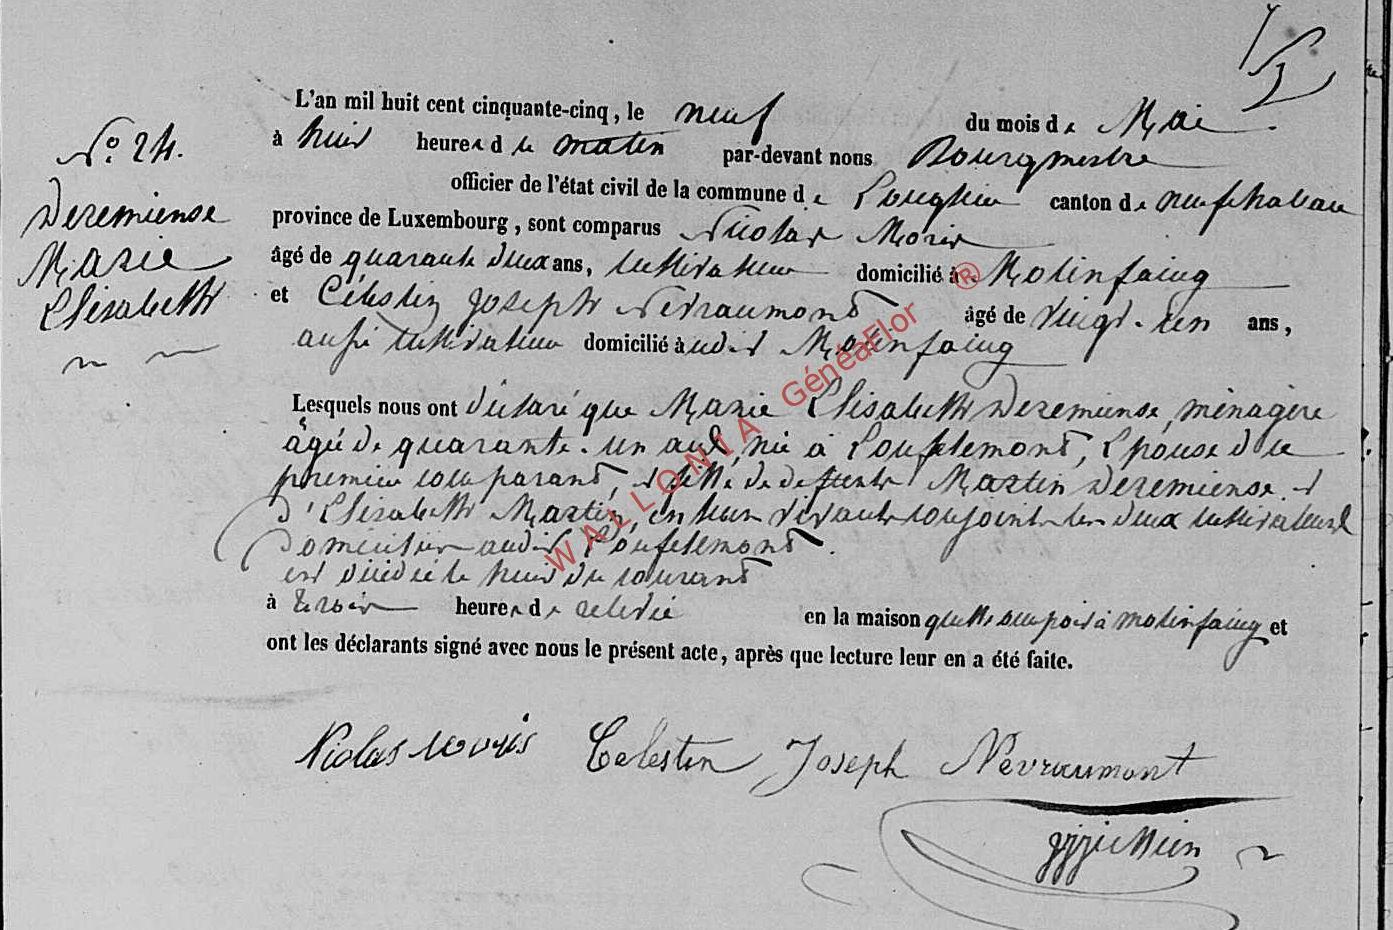 N° 24.
Deremiense
Marie
Elisabeth
L'an mil huit cent cinquante-cinq, le neuf du mois de Mai
à huit heures du matin par-devant nous Bourgmestre
officier de l'état civil de la commune de Longlier canton de neufchateau
province de Luxembourg, sont comparus Nicolas Moris
âgé de quarante deux ans, cultivateur domicilié à Molinfaing
et Célestin Joseph Nevraumont âgé de vingt-un ans,
aussi cultivateur domicilié à udit Molinfaing
Lesquels nous ont déclaré que Marie Elisabeth Deremiense, ménagère
âgée de quarante-un ans, née à Coufelemont, Epouse du
premier comparant, et fille de defunts Martin Deremiense et
d'Elisabeth Martin, en leur vivant conjoints les deux cultivateurs
domiciliés audit Coufelemont.
est décédée le huit du courant
à trois heures de relevée en la maison qu'elle occupoit à molinfaing et
ont les déclarants signé avec nous le présent acte, après que lecture leur en a été faite.
Nicolas moris Celestin Joseph Nevraumont
WALLONIA GénéaFlor ®